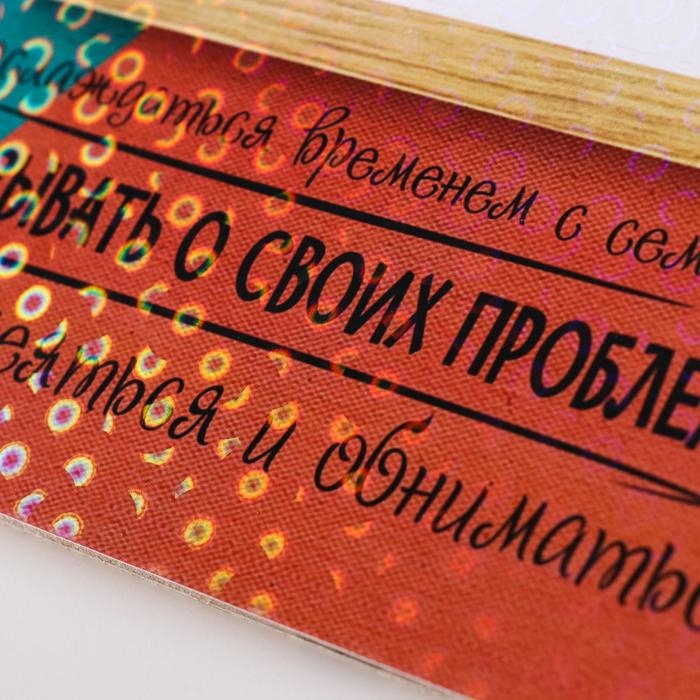 слаждаться временем с сем
ЫВАТЬ О СВОИХ ПРОБЛЕ
еяться и обниматьс